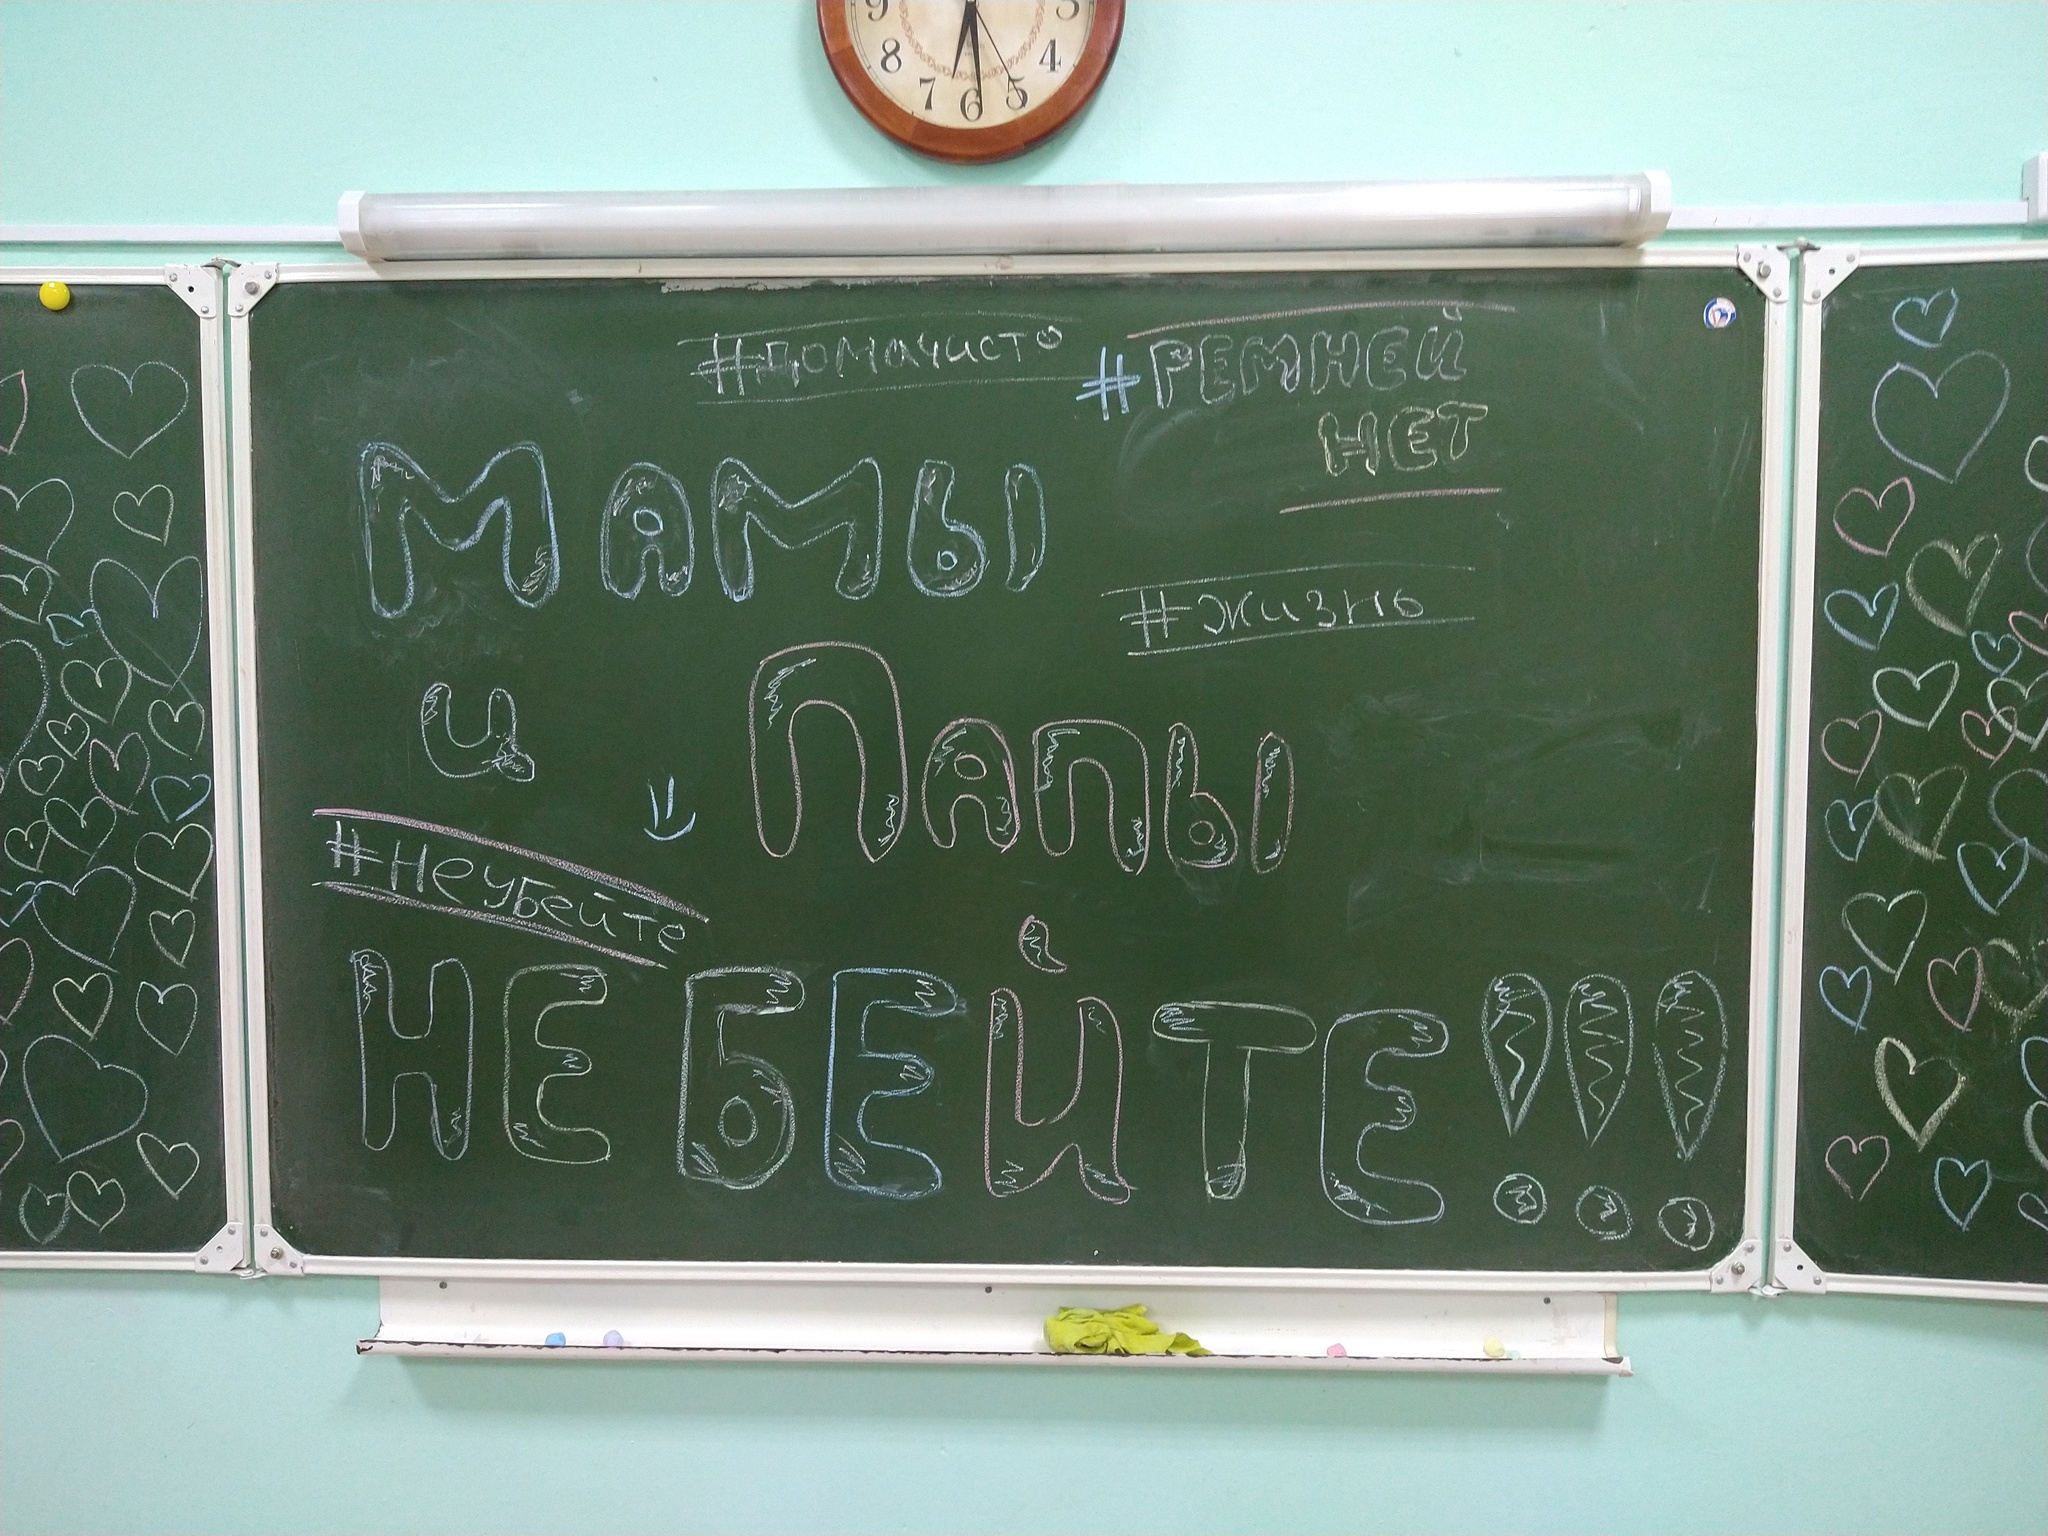 9 3
8 4
7 6 5
#домачисто
#РЕМНЕЙ
НЕТ
МАМЫ
#жизнь
и
ПАПЫ
#Неубейте
НЕ БЕЙТЕ!!!